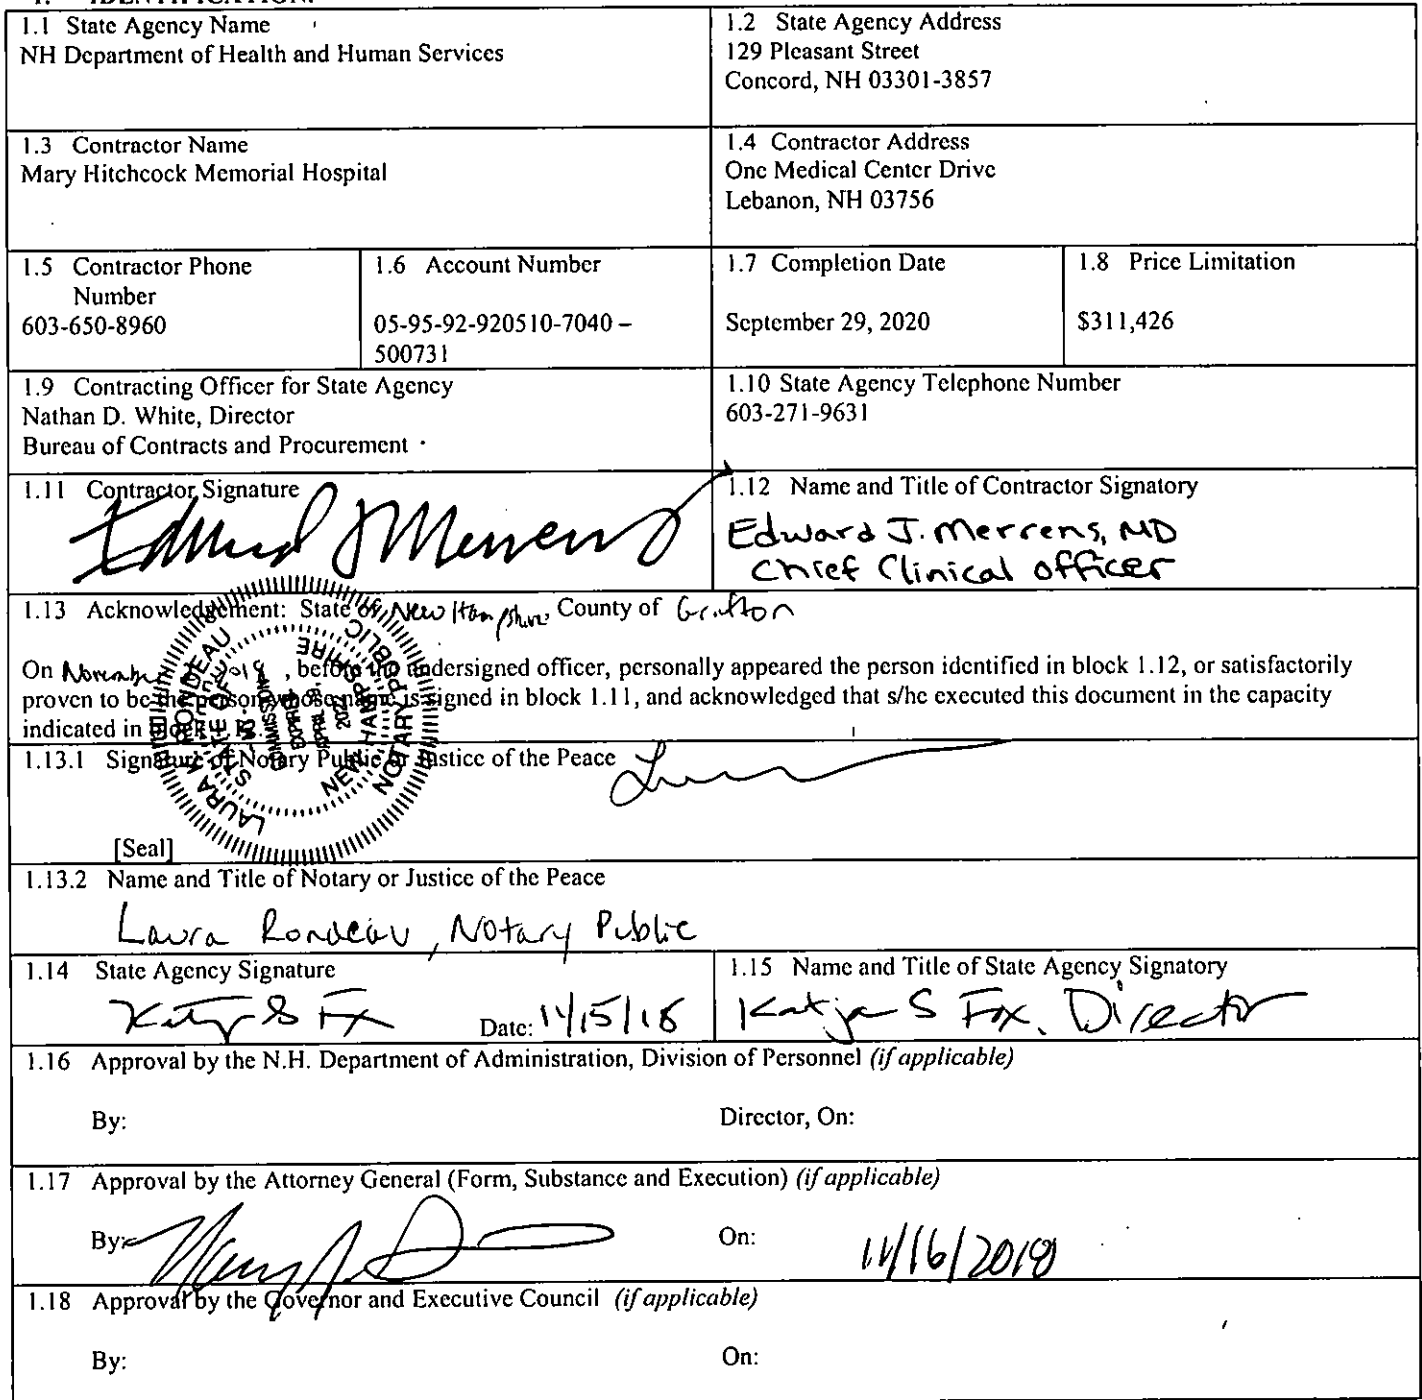 1.1 State Agency Name
NH Department of Health and Human Services
1.2 State Agency Address
129 Pleasant Street
Concord, NH 03301-3857
1.3 Contractor Name
Mary Hitchcock Memorial Hospital
1.4 Contractor Address
One Medical Center Drive
Lebanon, NH 03756
1.5 Contractor Phone
Number
603-650-8960
1.6 Account Number
05-95-92-920510-7040 –
500731
1.7 Completion Date
September 29, 2020
1.8 Price Limitation
$311,426
1.9 Contracting Officer for State Agency
Nathan D. White, Director
Bureau of Contracts and Procurement
1.10 State Agency Telephone Number
603-271-9631
1.11 Contractor Signature
Edward J Merrens
1.12 Name and Title of Contractor Signatory
Edward J. Merrens, MD
Chief Clinical Officer
1.13 Acknowledgement: State of New Hampshire, County of Grafton
On November , before the undersigned officer, personally appeared the person identified in block 1.12, or satisfactorily
proven to be the person whose name is signed in block 1.11, and acknowledged that s/he executed this document in the capacity
indicated in block
LAURA K RONDEAU
STATE OF NEW HAMPSHIRE
NOTARY PUBLIC
COMMISSION
EXPIRES
APRIL
1.13.1 Signature of Notary Public or Justice of the Peace
[Seal]
1.13.2 Name and Title of Notary or Justice of the Peace
Laura Rondeau, Notary Public
1.14 State Agency Signature
Date: 11/15/18
1.15 Name and Title of State Agency Signatory
Katja S Fox, Director
1.16 Approval by the N.H. Department of Administration, Division of Personnel (if applicable)
By: Director, On:
1.17 Approval by the Attorney General (Form, Substance and Execution) (if applicable)
By: On: 11/16/2018
1.18 Approval by the Governor and Executive Council (if applicable)
By: On: